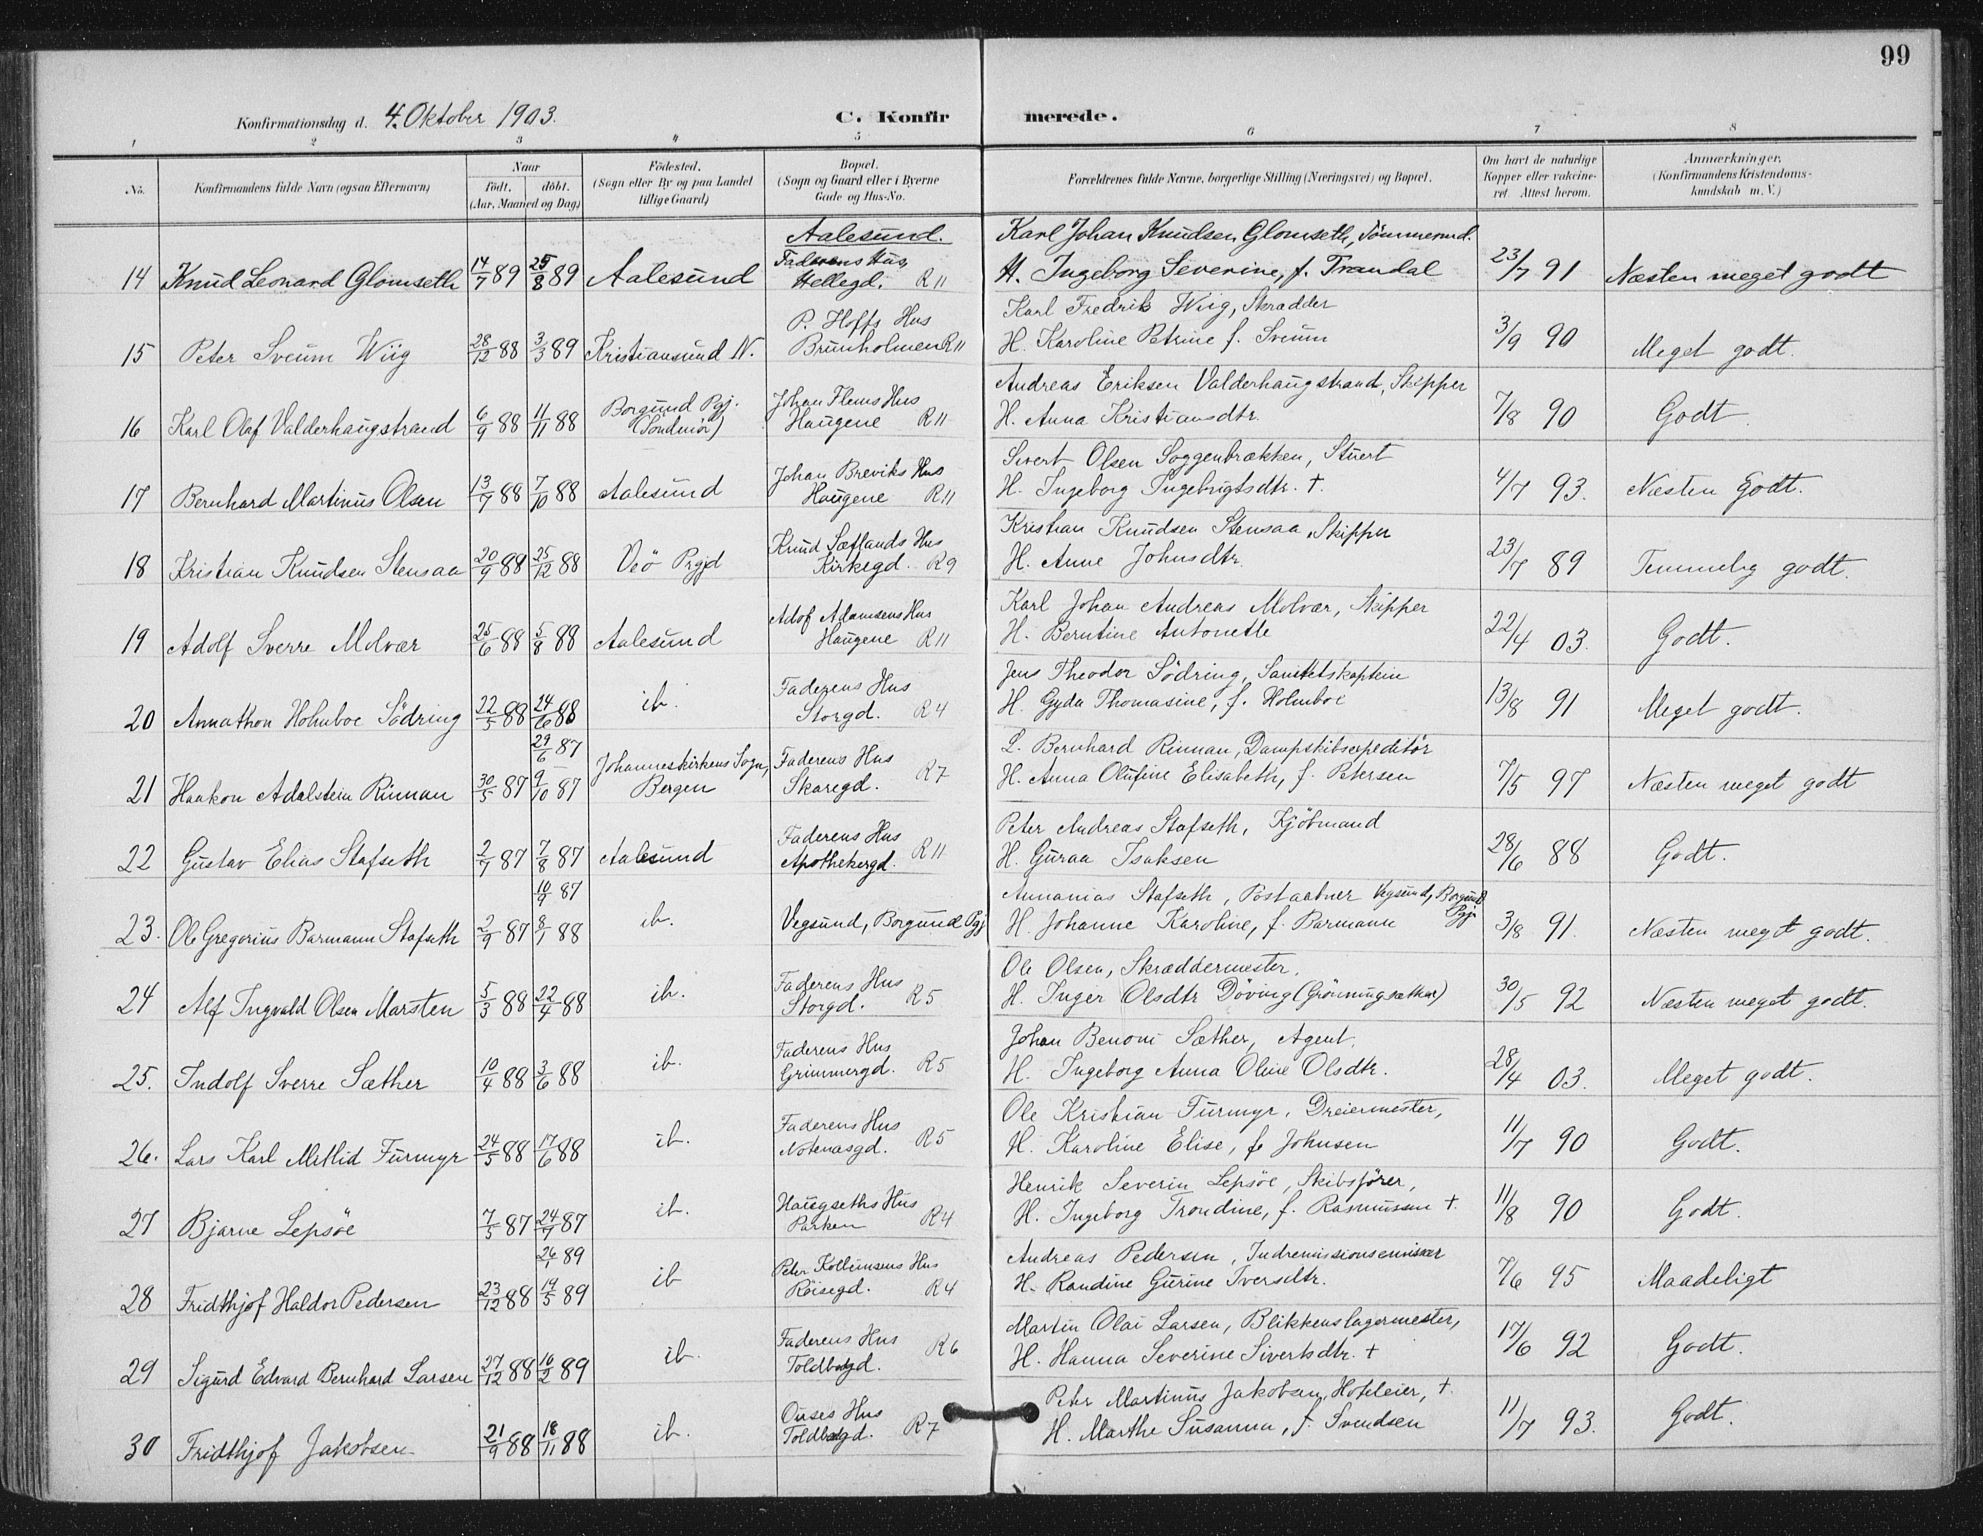 99
Konfirmationsdag d. 4. Oktober 1903.
C. Konfirmerede.
1 2 3 4 5 6 7 8
No.
Konfirmandens fulde Navn (ogsaa Efternavn)
Naar
födt. döbt.
(Aar, Maaned og Dag)
Födested.
(Sogn eller By og paa Landet
tillige Gaard)
Bopæl.
(Sogn og Gaard eller i Byerne
Gade og Hus-No.
Forældrenes fulde Navne, borgerlige Stilling (Næringsvei) og Bopæl.
Om havt de naturlige
Kopper eller vakcine-
ret. Attest herom.
Anmærkninger.
(Konfirmandens Kristendoms-
kundskab m. V.)
Aalesund.
Karl Johan Knudsen Glomseth, Tömmermd.
Faderens Hus,
14 Knud Leonard Glomseth 14/7 89 25/8 89 Aalesund Hellegd. R 11 H. Ingeborg Severine, f. Trandal 23/7 91 Næsten meget godt
P. Hoffs Hus Karl Fredrik Wiig, Skrædder
15 Peter Sveum Wiig 28/12 88 3/3 89 Kristiansund N. Brunholmen R 11 H. Karoline Petrine f. Sveum 3/9 90 Meget godt.
Borgund Pgj. Johan Flems Hus Andreas Eriksen Valderhaugstrand, Skipper
16 Karl Olaf Valderhaugstrand 6/9 88 11/11 88 (Söndmör) Haugene R 11 H. Anna Kristiansdtr. 7/8 90 Godt
Johan Breviks Hus Sivert Olsen Soggenbrækken, Stuert
17 Bernhard Martinus Olsen 13/7 88 7/10 88 Aalesund Haugene R. 11 H. Ingeborg Ingebrigtsdtr. †. 4/7 93. Næsten Godt.
Knud Sætlands Hus Kristian Knudsen Stensaa, Skipper
18 Kristian Knudsen Stensaa 20/9 88 25/12 88 Veö Prgjd Kirkegd. R 9 H. Anne Johnsdtr. 23/7 89 Temmelig godt.
Adof Adamsens Hus Karl Johan Andreas Molvær, Skipper
19 Adolf Sverre Molvær 25/6 88 5/8 88 Aalesund Haugene R 11 H. Berntine Antonette 22/4 03. Godt.
Faderens Hus Jens Theodor Södring, Sanitetskaptein
20 Annathon Holmboe Södring 22/5 88 24/6 88 ib. Storgd. R 4 H. Gyda Thomasine, f. Holmboe 13/8 91 Meget godt.
29/6 87 Johanneskirkens Sogn, Faderens Hus L. Bernhard Rinnan, Dampskibsexpeditör
21 Haakon Adalstein Rinnan 30/5 87 9/10 87 Bergen Skaregd. R 7 H. Anna Olufine Elisabeth, f. Petersen 7/5 97 Næsten meget godt
Faderens Hus Peter Andreas Stafseth, Kjöbmand
22 Gustav Elias Stafseth 2/7 87 7/8 87 Aalesund Apothekergd. R 11 H. Guraa Isaksen 28/6 88 Godt.
10/9 87 Annanias Stafseth, Postaabner Vegsund, Borgund Pgj.
23. Ole Gregorius Barmann Stafseth 2/9 87 8/1 88 ib. Vegsund, Borgund Pgj H. Johanne Karoline, f. Barmann 3/8 91. Næsten meget godt.
Faderens Hus Ole Olsen, Skræddermester.
24 Alf Ingvald Olsen Marsten 5/3 88 22/4 88 ib. Storgd. R 5 H. Inger Olsdtr Döving (Grönningsæther) 30/5 92 Næsten meget godt.
Faderens Hus Johan Benoni Sæther, Agent.
25. Indolf Sverre Sæther 10/4 88 3/6 88 ib. Grimmergd. R 5 H. Ingeborg Anna Oline Olsdtr. 28/4 03. Meget godt.
Faderens Hus Ole Kristian Furmyr, Dreiermester,
26. Lars Karl Mitlid Furmyr 24/5 88 17/6 88 ib. Notenæsgd. R 5 H. Karoline Elise, f. Johnsen 11/7 90 Godt.
Haugseths Hus Henrik Severin Lepsöe, Skibsförer,
27 Bjarne Lepsöe 7/5 87 24/7 87 ib. Parken R 4 H. Ingeborg Trondine, f. Rasmussen †. 11/8 90 Godt.
26/1 89 Hus Andreas Pedersen, Indremissionsemissær
28 Fridthjof Haldor Pedersen 23/12 88 19/5 89 ib Röisegd. R 4 H. Randine Gurine Iversdtr. 7/6 95 Maadeligt
Faderens Hus Martin Olai Larsen, Blikkenslagermester,
29 Sigurd Edvard Bernhard Larsen 27/12 88 10/2 89 ib. Toldbodgd. R 6 H. Hanna Severine Sivertsdtr. † 17/6 92 Godt.
Ouses Hus Peter Martinus Jakobsen, Hofeleier, †.
30 Fridthjof Jakobsen 21/9 88 18/11 88 ib. Toldbodgd. R 7 H. Marthe Susanna, f. Svendsen 11/7 93. Godt.